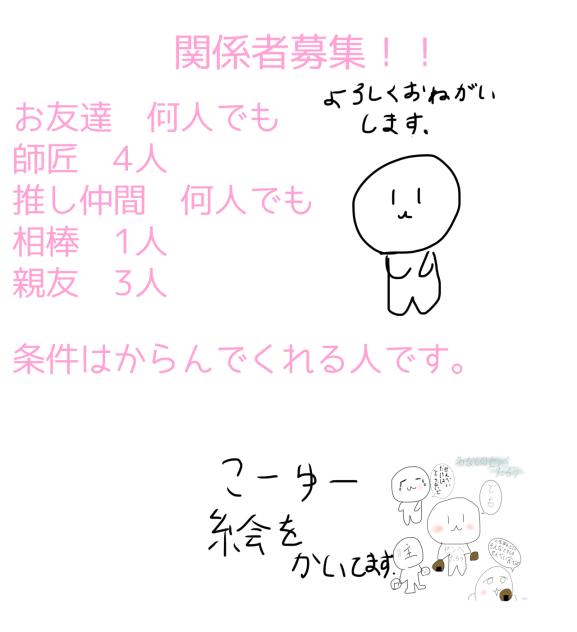 関係者募集！！
よろしくおねがい
します.
お友達　何人でも
師匠　4人
推し仲間　何人でも
相棒　1人
親友　3人
条件はからんでくれる人です。
こーゆー
絵を
かいてます.
でも
主